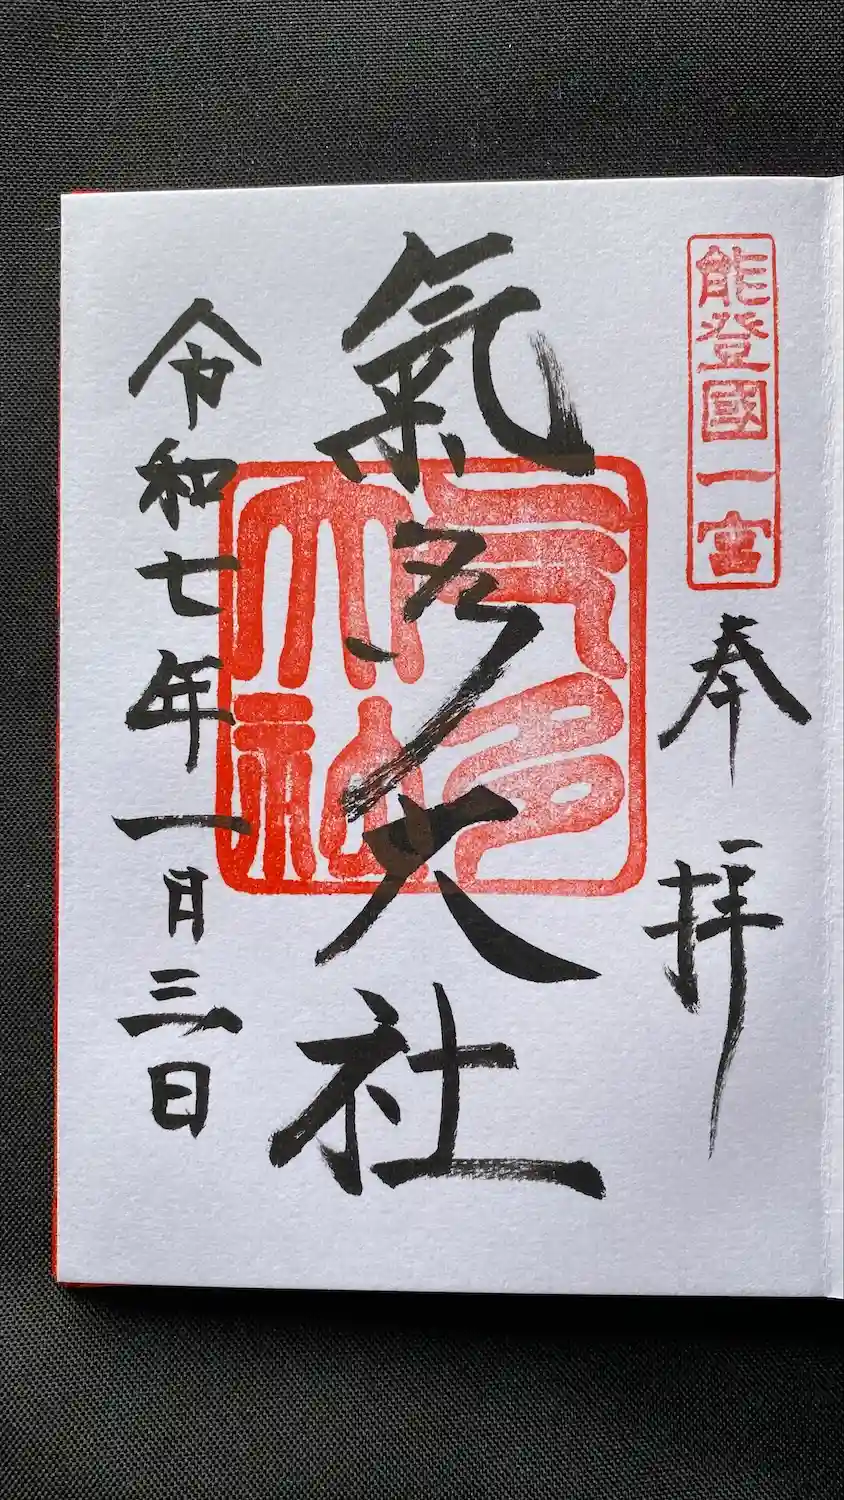 能登國一宮
奉拝
氣多大社
気多大社
令和七年一月三日